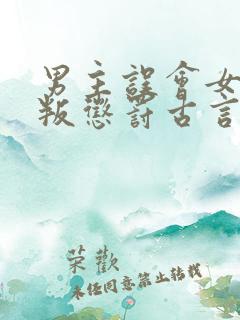 男主誤會女
叛懲罰古言
荣歡
未经同意禁止转载